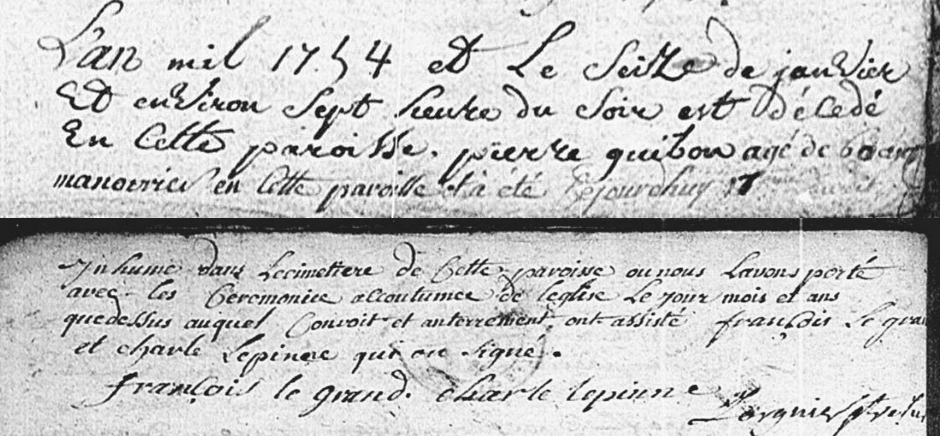 L'an mil 1754 et Le Seitze de janvier
Et environ Sept heure du Soir est décedé
En Cette paroisse. pierre quibou agé de 60 ans
manouvrier en Cette paroisse et à été Ejourdhuy 17
Inhumé dans Lecimettere de Cette paroisse ou nous Lavons porté
avec les Ceremonice accoutumee de leglise Le jour mois et ans
quedessus auquel Convoit et anterrement ont assisté françois Le gran
et charle Lepinne qui on Signé.
françois le grand. charle lepinne